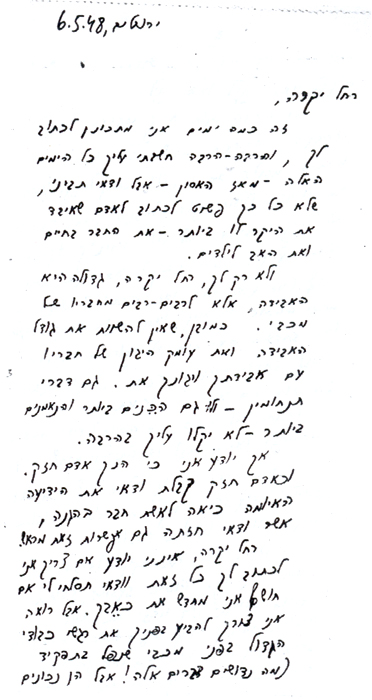 ירושלים, 6.5.48
רחל יקרה,
זה כמה ימים אני מתכונן לכתוב
לך, והרבה-הרבה חשבתי עליך כל הימים
האלה – מאז האסון – אבל ודאי תביני,
שלא כל כך פשוט לכתוב לאדם שאיבד
את היקר לו ביותר – את החבר בחיים
ואת האב לילדים.
ולא רק לך, רחל יקרה, גדולה היא
האבידה, אלא לרבים-רבים מחבריו של
מכבי. כמובן, שאין להשוות את גודל
האבידה ואת עומק היגון של חבריו
עם אבידתך ויגונך את. גם דברי
תנחומין – ולו גם הכנים ביותר והנאמנים
ביותר – לא יקלו עליך בהרבה.
אך יודע אני כי הנך אדם חזק.
וכאדם חזק קבלת ודאי את הידיעה
האיומה כיאה לאשת חבר בהגנה,
אשר ודאי חזתה גם אפשרות זאת מראש
רחל יקרה, אינני יודע אם צריך אני
לכתוב לך כל זאת וודאי תסלחי לי אם
חושף אני מחדש את כאבך. אבל רואה
אני צורך להביע בפניך את רגשי כבודי
הגדול בפני מכבי שנפל בתפקיד
(מה נדושים דברים אלה! אבל הן נכונים